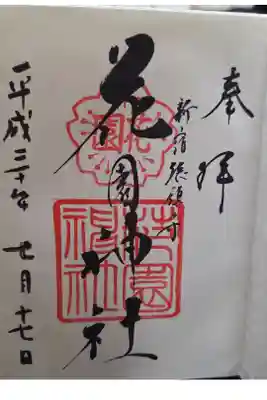 奉拝
新宿総鎮守
花園神社
花園
花園
神社
平成三十年 七月 十七日